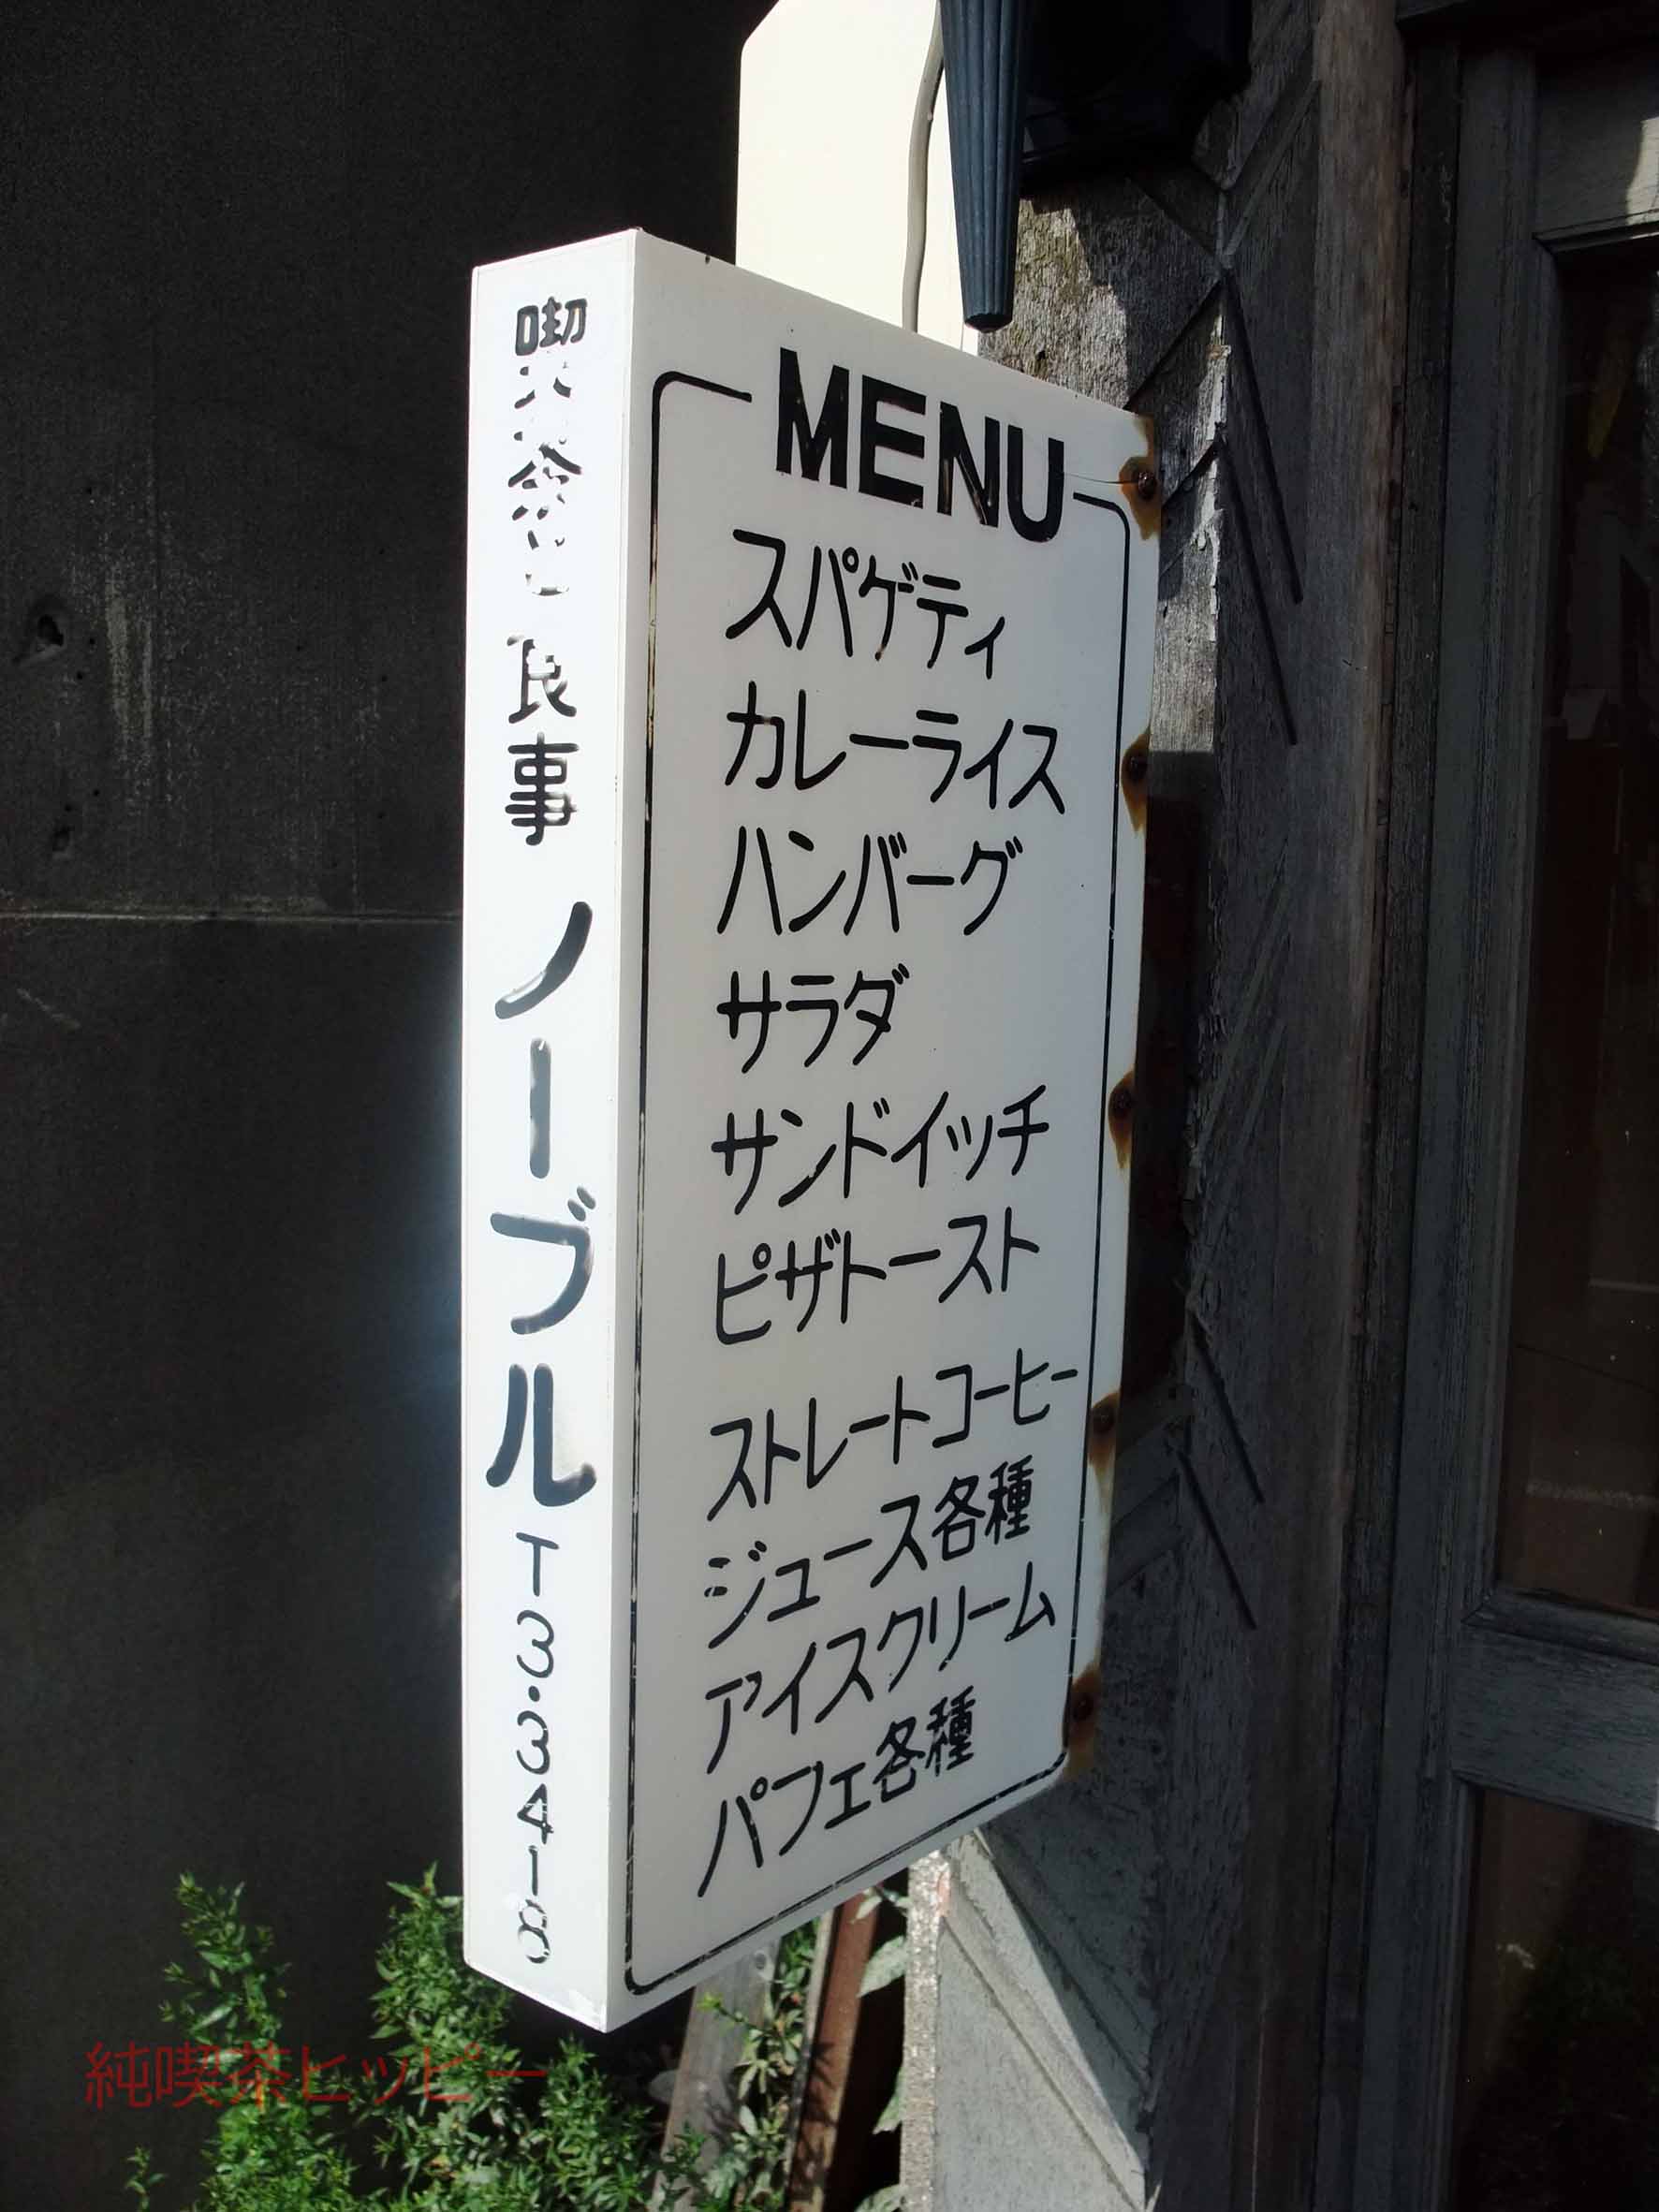 喫茶と食事 ノーブル T3・3418
MENU
スパゲティ
カレーライス
ハンバーグ
サラダ
サンドイッチ
ピザトースト
ストレートコーヒー
ジュース各種
アイスクリーム
パフェ各種
純喫茶ヒッピー